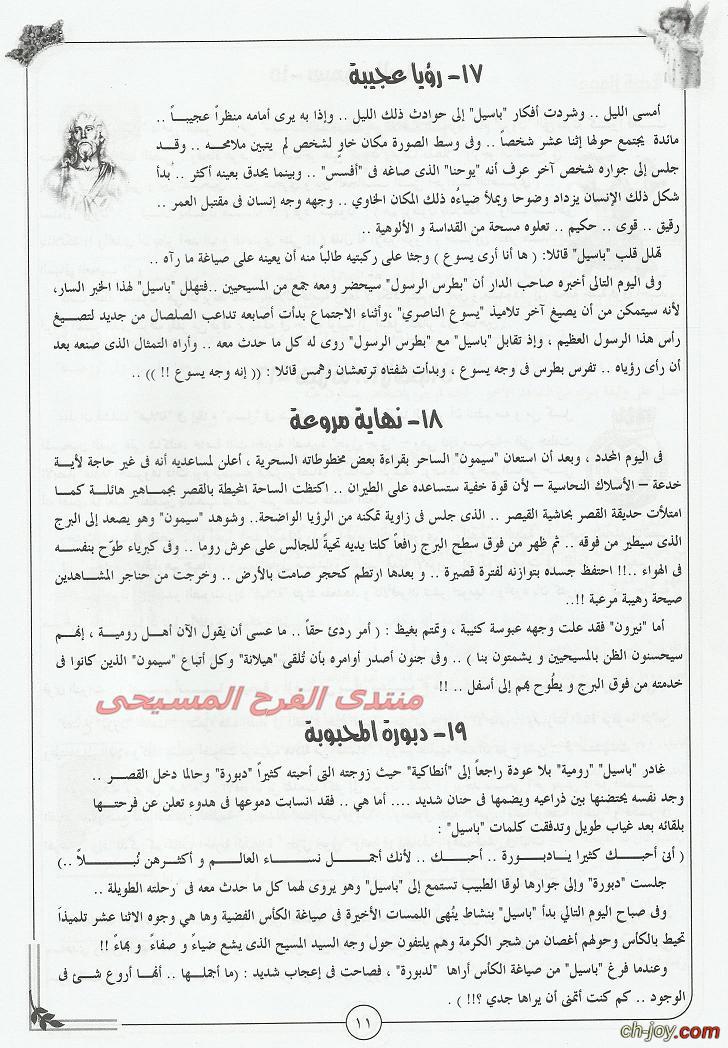 ١٧- رؤيا عجيبة
أمسى الليل .. وشردت أفكار "باسيل" إلى حوادث ذلك الليل .. وإذا به يرى أمامه منظراً عجيباً ..
مائدة يجتمع حولها إثنا عشر شخصاً .. وفى وسط الصورة مكان خاوٍ لشخص لم يتبين ملامحه .. وقد
جلس إلى جواره شخص آخر عرف أنه "يوحنا" الذى صاغه فى "أفسس" .. وبينما يحدق بعينه أكثر .. بدأ
شكل ذلك الإنسان يزداد وضوحا ويملأ ضياءُه ذلك المكان الخاوي .. وجهه وجه إنسان فى مقتبل العمر ..
رقيق .. قوى .. حكيم .. تعلوه مسحة من القداسة و الألوهية ..
تهلل قلب "باسيل" قائلا: ( ها أنا أرى يسوع ) وجثا على ركبتيه طالباً منه أن يعينه على صياغة ما رآه ..
وفى اليوم التالى أخبره صاحب الدار أن "بطرس الرسول" سيحضر ومعه جمع من المسيحيين ..فتهلل "باسيل" لهذا الخبر السار،
لأنه سيتمكن من أن يصيغ آخر تلاميذ "يسوع الناصري" ،وأثناء الاجتماع بدأت أصابعه تداعب الصلصال من جديد لتصيغ
رأس هذا الرسول العظيم ، وإذ تقابل "باسيل" مع "بطرس الرسول" روى له كل ما حدث معه .. وأراه التمثال الذى صنعه بعد
أن رأى رؤياه .. تفرس بطرس فى وجه يسوع ، وبدأت شفتاه ترتعشان وهمس قائلا : (( إنه وجه يسوع !! )) ..
١٨- نهاية مروعة
فى اليوم المحدد ، وبعد أن استعان "سيمون" الساحر بقراءة بعض مخطوطاته السحرية ، أعلن لمساعديه أنه فى غير حاجة لأية
خدعة – الأسلاك النحاسية – لأن قوة خفية ستساعده على الطيران .. اكتظت الساحة المحيطة بالقصر بجماهير هائلة كما
امتلأت حديقة القصر بحاشية القيصر .. الذى جلس فى زاوية تمكنه من الرؤيا الواضحة.. وشوهد "سيمون" وهو يصعد إلى البرج
الذى سيطير من فوقه .. ثم ظهر من فوق سطح البرج رافعاً كلتا يديه تحيةً للجالس على عرش روما .. وفى كبرياء طوّح بنفسه
فى الهواء ..!! احتفظ جسده بتوازنه لفترة قصيرة .. و بعدها ارتطم كحجر صامت بالأرض .. وخرجت من حناجر المشاهدين
صيحة رهيبة مرعبة !!..
أما "نيرون" فقد علت وجهه عبوسة كئيبة ، وتمتم بغيظ : ( أمر ردئ حقاً .. ما عسى أن يقول الآن أهل رومية ، إنهم
سيحسنون الظن بالمسيحيين و يشمتون بنا ) .. وفى جنون أصدر أوامره بأن تُلقى "هيلانة" وكل أتباع "سيمون" الذين كانوا فى
خدمته من فوق البرج و يُطوح بهم إلى أسفل .. !!
منتدى الفرح المسيحى
١٩- دبورة المحبوبة
غادر "باسيل" "رومية" بلا عودة راجعاً إلى "أنطاكية" حيث زوجته التى أحبته كثيراً "دبورة" وحالما دخل القصر ..
وجد نفسه يحتضنها بين ذراعيه ويضمها فى حنان شديد .... أما هي .. فقد انسابت دموعها فى هدوء تعلن عن فرحتها
بلقائه بعد غياب طويل وتدفقت كلمات "باسيل" :
( أنى أحبك كثيرا يادبورة .. أحبك .. لأنك أجمل نساء العالم و أكثرهن نُبلاً ..)
جلست "دبورة" وإلى جوارها لوقا الطبيب تستمع إلى "باسيل" وهو يروى لهما كل ما حدث معه فى رحلته الطويلة ..
وفى صباح اليوم التالي بدأ "باسيل" بنشاط يُنهى اللمسات الأخيرة فى صياغة الكأس الفضية وها هي وجوه الاثنا عشر تلميذاً
تحيط بالكأس وحولهم أغصان من شجر الكرمة وهم يلتفون حول وجه السيد المسيح الذى يشع ضياءً و صفاءً و بهاءً !!
وعندما فرغ "باسيل" من صياغة الكأس أراها "لدبورة" ، فصاحت فى إعجاب شديد : (ما أجملها .. أنها أروع شئ فى
الوجود .. كم كنت أتمنى أن يراها جدي ؟!! ) .
١١
ch-joy.com